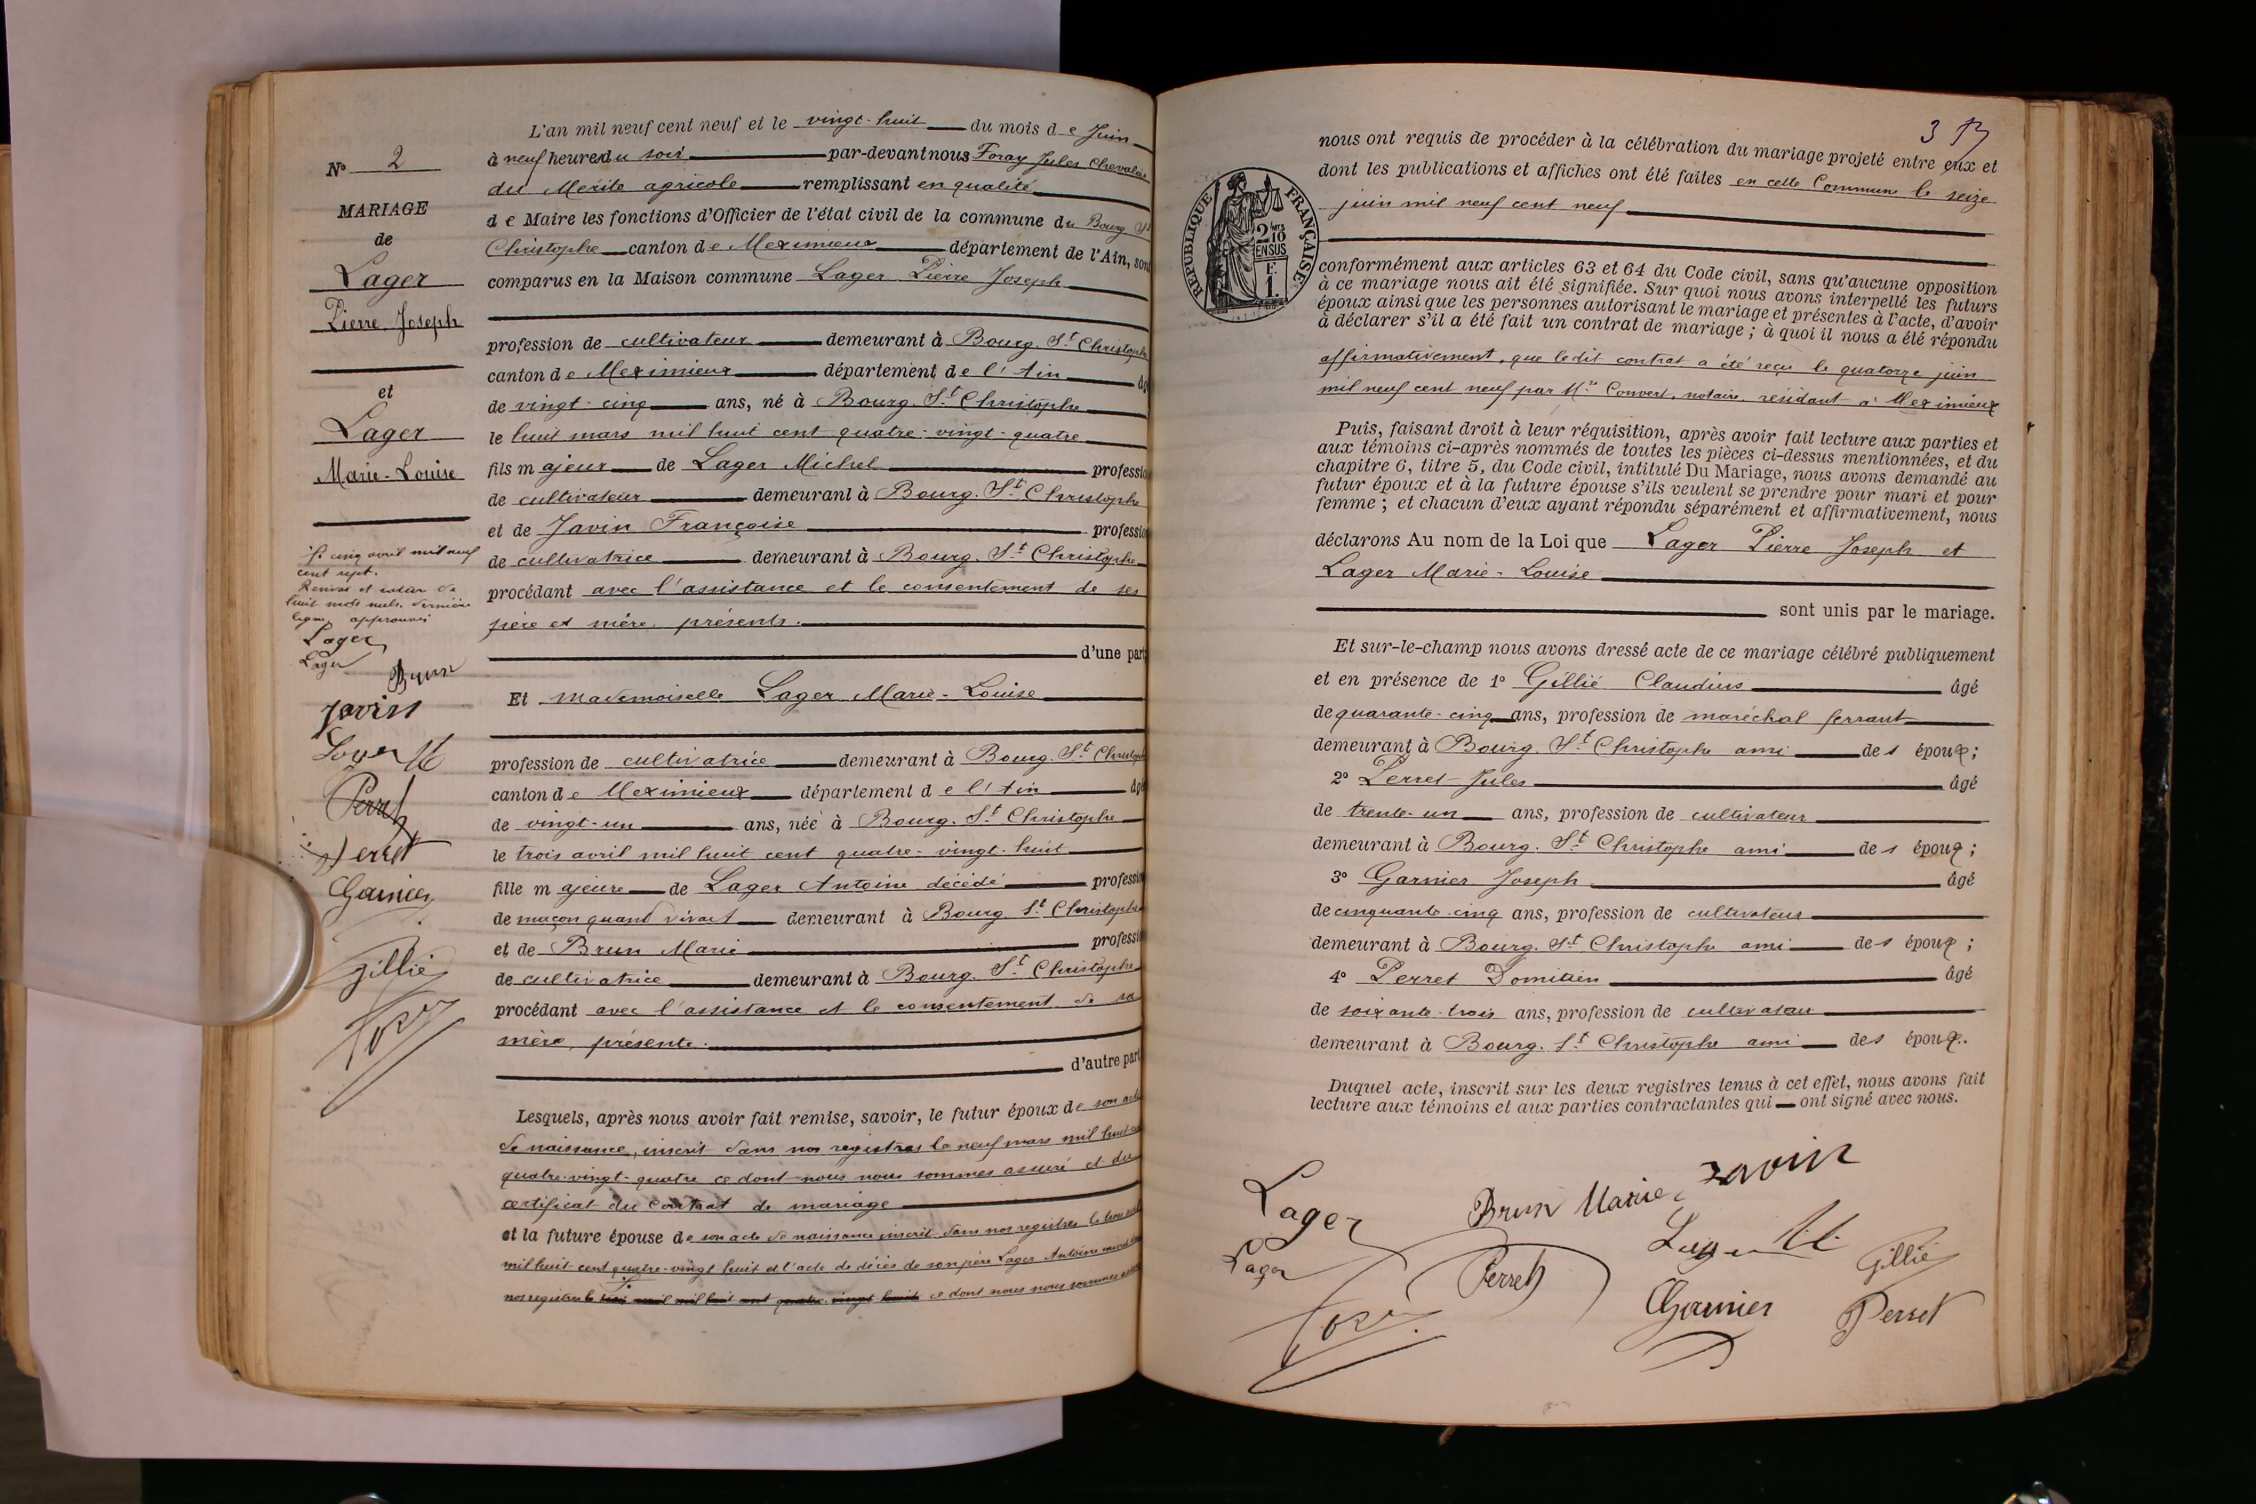 N° 2
MARIAGE
de
Lager
Pierre Joseph
et
Lager
Marie-Louise
cinq avril mil neuf
cent sept.
Renvoi et rature de
huit mots nuls dernière
ligne, approuvés
Lager
Lager
Brun
Javin
Lager M
Perret
Perret
Garnier
Gillié
Foray
L'an mil neuf cent neuf et le vingt-huit du mois de Juin
à neuf heures du soir par-devant nous Foray Jules Chevalier
du Mérite agricole remplissant en qualité
de Maire les fonctions d'Officier de l'état civil de la commune du Bourg St
Christophe canton de Meximieux département de l'Ain, sont
comparus en la Maison commune Lager Pierre Joseph
profession de cultivateur demeurant à Bourg. St Christophe
canton de Meximieux département de l'Ain âgé
de vingt-cinq ans, né à Bourg. St Christophe
le huit mars mil huit cent quatre-vingt-quatre
fils majeur de Lager Michel profession
de cultivateur demeurant à Bourg. St Christophe
et de Javin Françoise profession
de cultivatrice demeurant à Bourg. St Christophe
procédant avec l'assistance et le consentement de ses
père et mère, présents.
d'une part
Et mademoiselle Lager Marie-Louise
profession de cultivatrice demeurant à Bourg. St Christophe
canton de Meximieux département de l'Ain âgé
de vingt-un ans, née à Bourg. St Christophe
le trois avril mil huit cent quatre-vingt-huit
fille majeure de Lager Antoine décédé profession
de maçon quand vivait demeurant à Bourg St Christophe
et de Brun Marie profession
de cultivatrice demeurant à Bourg. St Christophe
procédant avec l'assistance et le consentement de sa
mère, présente.
d'autre part
Lesquels, après nous avoir fait remise, savoir, le futur époux de son acte
de naissance, inscrit dans nos registres le neuf mars mil huit cent
quatre-vingt-quatre ce dont nous nous sommes assuré et du
certificat du contrat de mariage
et la future épouse de son acte de naissance inscrit dans nos registres le trois avril
mil huit cent quatre-vingt huit et l'acte de décès de son père Lager Antoine inscrit dans
nos registres le trois avril mil huit cent quatre vingt huit ce dont nous nous sommes assuré
3
nous ont requis de procéder à la célébration du mariage projeté entre eux et
dont les publications et affiches ont été faites en cette Commune le seize
juin mil neuf cent neuf
RÉPUBLIQUE FRANÇAISE
2/10 EN SUS
F. 1.
conformément aux articles 63 et 64 du Code civil, sans qu'aucune opposition
à ce mariage nous ait été signifiée. Sur quoi nous avons interpellé les futurs
époux ainsi que les personnes autorisant le mariage et présentes à l'acte, d'avoir
à déclarer s'il a été fait un contrat de mariage ; à quoi il nous a été répondu
affirmativement, que ledit contrat a été reçu le quatorze juin
mil neuf cent neuf par Me Convert, notaire résidant à Meximieux
Puis, faisant droit à leur réquisition, après avoir fait lecture aux parties et
aux témoins ci-après nommés de toutes les pièces ci-dessus mentionnées, et du
chapitre 6, titre 5, du Code civil, intitulé Du Mariage, nous avons demandé au
futur époux et à la future épouse s'ils veulent se prendre pour mari et pour
femme ; et chacun d'eux ayant répondu séparément et affirmativement, nous
déclarons Au nom de la Loi que Lager Pierre Joseph et
Lager Marie-Louise
sont unis par le mariage.
Et sur-le-champ nous avons dressé acte de ce mariage célébré publiquement
et en présence de 1° Gillié Claudius âgé
de quarante-cinq ans, profession de maréchal ferrant
demeurant à Bourg. St Christophe ami des époux ;
2° Perret Jules âgé
de trente-un ans, profession de cultivateur
demeurant à Bourg. St Christophe ami des époux ;
3° Garnier Joseph âgé
de cinquante-cinq ans, profession de cultivateur
demeurant à Bourg. St Christophe ami des époux ;
4° Perret Domitien âgé
de soixante-trois ans, profession de cultivateur
demeurant à Bourg. St Christophe ami des époux.
Duquel acte, inscrit sur les deux registres tenus à cet effet, nous avons fait
lecture aux témoins et aux parties contractantes qui ont signé avec nous.
Lager
Brun Marie
Javin
Lager
Lager M
Gillié
Perret
Foray
Garnier
Perret